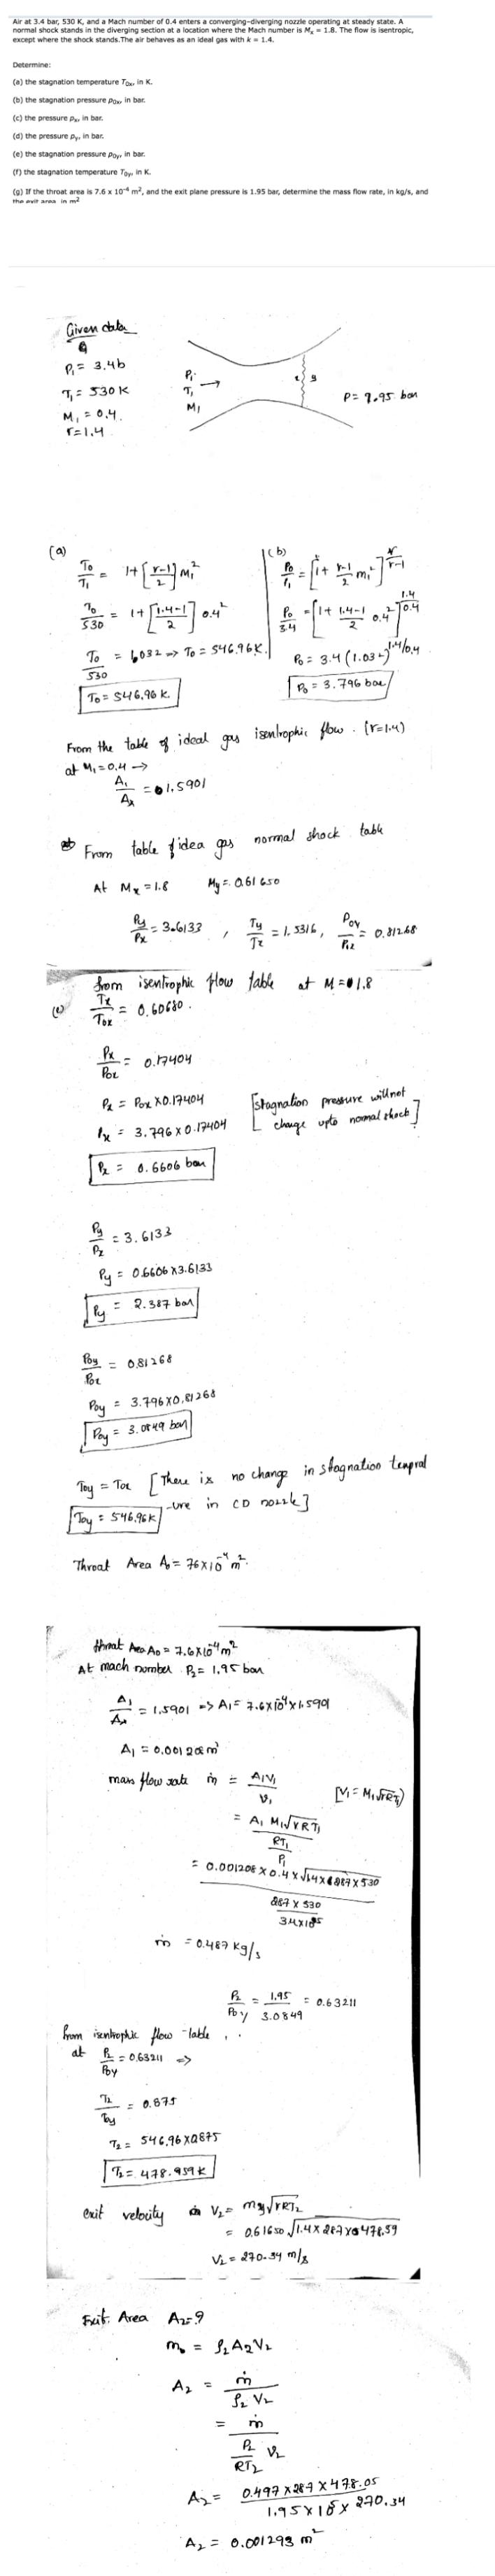 Air at 3.4 bar, 530 K, and a Mach number of 0.4 enters a converging-diverging nozzle operating at steady state. A
normal shock stands in the diverging section at a location where the Mach number is Mx = 1.8. The flow is isentropic,
except where the shock stands.The air behaves as an ideal gas with k = 1.4.
Determine:
(a) the stagnation temperature Tox, in K.
(b) the stagnation pressure pox, in bar.
(c) the pressure px, in bar.
(d) the pressure py, in bar.
(e) the stagnation pressure poy, in bar.
(f) the stagnation temperature Toy, in K.
(g) If the throat area is 7.6 x 10⁻⁴ m², and the exit plane pressure is 1.95 bar, determine the mass flow rate, in kg/s, and
the exit area in m²
Given data
P₁ = 3.4b
T₁ = 530K
M₁ = 0.4
r=1.4
P₁
T₁ →
M₁
x y
bar
(a)
To/T₁ = 1+[r-1/2] M₁²
To/530 = 1+[1.4-1/2] 0.4²
To/530 = 1.032 => To = 546.96K.
To = 546.96 k.
(b)
Po/P₁ = [1+ r-1/2 m₁²]^r/r-1
Po/3.4 = [1+ 1.4-1/2 0.4²]^1.4/0.4
Po = 3.4 (1.032)^1.4/0.4
Po = 3.796 bar
From the table of ideal gas isentrophic flow. (r=1.4)
at M₁=0.4 →
A₁/Ax = 1.5901
From table of idea gas normal shock table
At Mx = 1.8 My = 0.61650
Py/Px = 3.6133 , Ty/Tx = 1.5316, Poy/Pox = 0.81268
from isentrophic flow table at M = 1.8
(c)
Tx/Tox = 0.60680.
Px/Pox = 0.17404
Px = Pox X0.17404
Px = 3.796 x 0.17404
[stagnation pressure will not
change upto normal shock]
Px = 0.6606 bar
Py/Px = 3.6133
Py = 0.6606 X3.6133
Py = 2.387 bar
Poy/Pox = 0.81268
Poy = 3.796X0.81268
Poy = 3.0849 bar
Toy = Tox [There is no change in stagnation temprat
-ure in CD nozzle]
Toy = 546.96K
Throat Area Ao = 76x10⁻⁴ m².
throat Area Ao = 7.6X10⁻⁴m²
At mach number P₂= 1.95 bar
A₁/Ax = 1.5901 => A₁= 7.6x10⁻⁴x1.5901
A₁ = 0.001208m²
mass flow rate ṁ = A₁V₁/v₁ [V₁ = M₁√rRT₁]
= A₁ M₁√rRT₁ / RT₁/P₁
= 0.001208 x 0.4 x √1.4x287x530
287 x 530
3.4x10⁵
ṁ = 0.487 kg/s
P₂/Poy = 1.95/3.0849 = 0.63211
from isentrophic flow table
at P₂/Poy = 0.63211 =>
T₂/Toy = 0.875
T₂ = 546.96 X0.875
T₂ = 478.959k
exit velocity V₂ = my√rRT₂
= 0.61650 √1.4x287x478.59
V₂ = 270.34 m/s
Exit Area A₂=?
ṁ = ρ₂A₂V₂
A₂ = ṁ/ρ₂V₂
= ṁ / P₂/RT₂ V₂
A₂ = 0.497 x 287 x 478.05 / 1.95 x 10⁵ x 270.34
A₂ = 0.001293 m²